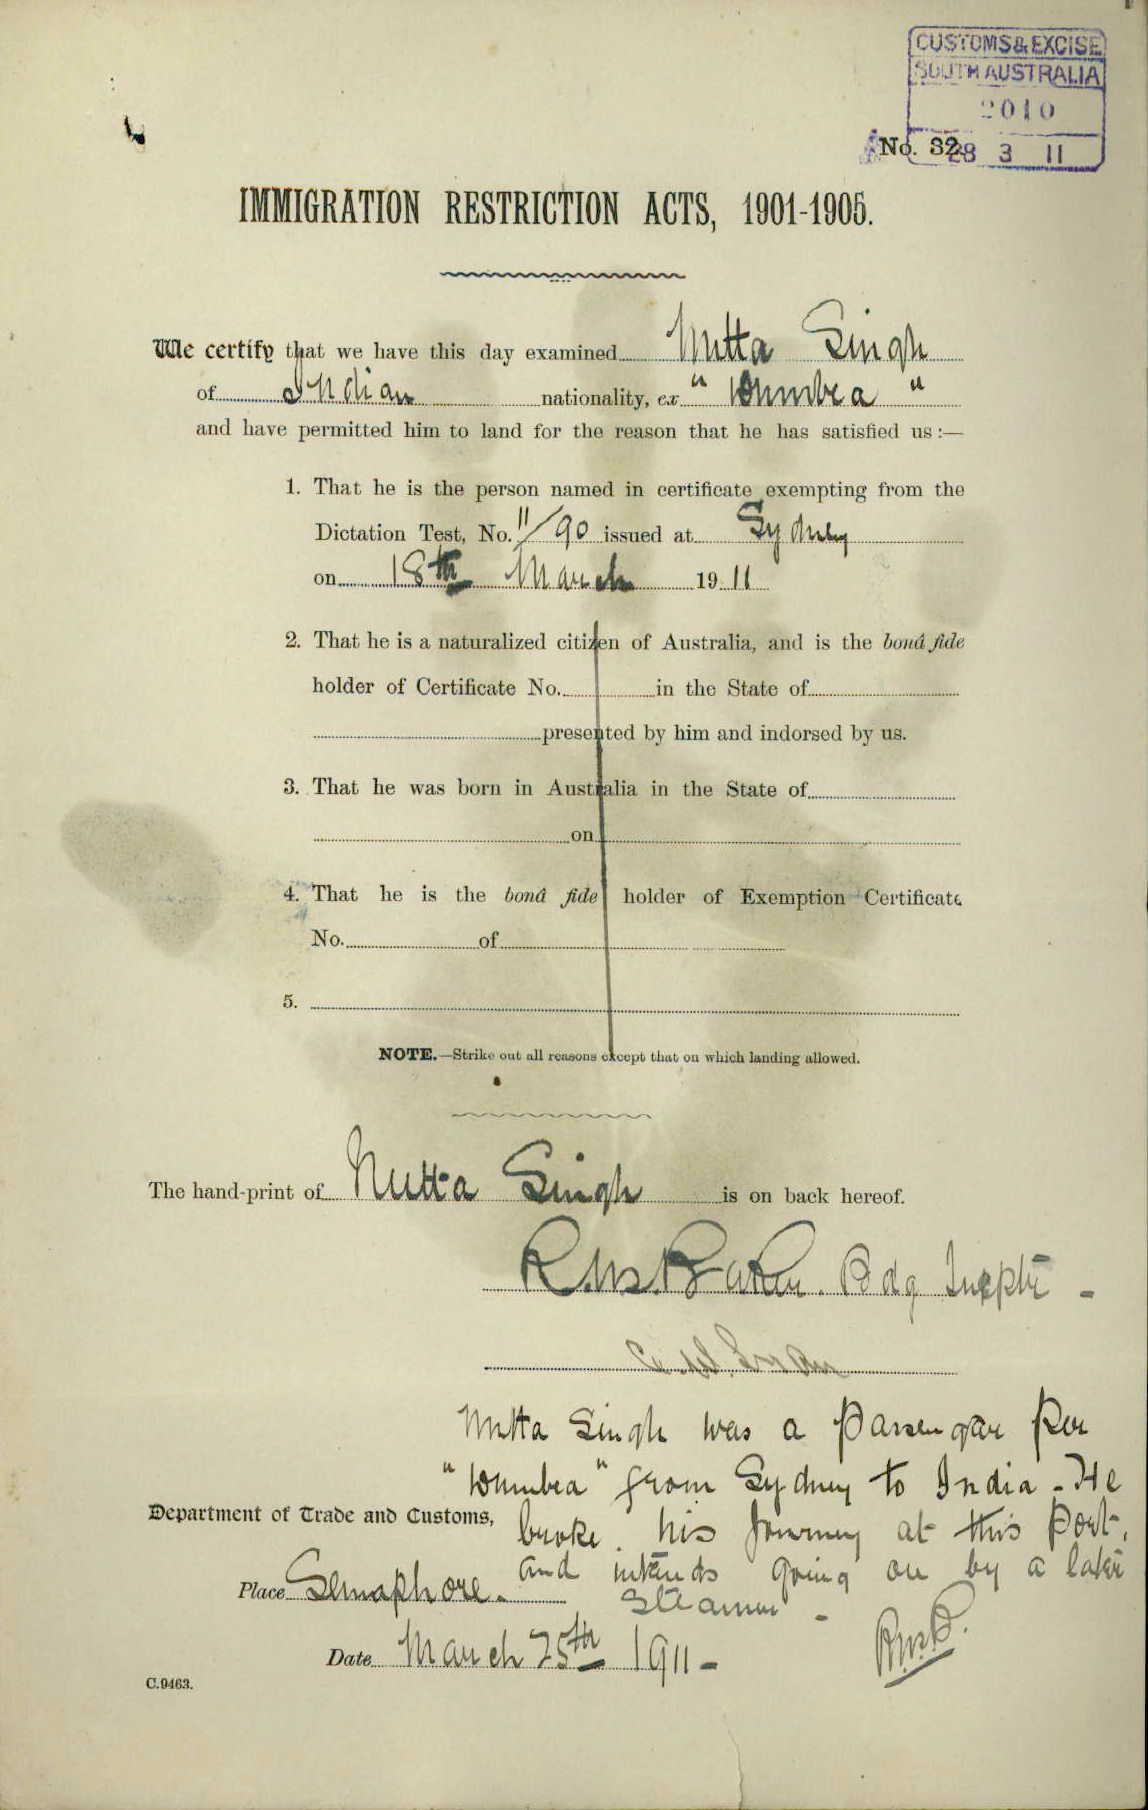 CUSTOMS & EXCISE
SOUTH AUSTRALIA
2010
28 3 11
No. 32.
IMMIGRATION RESTRICTION ACTS, 1901-1905.
We certify that we have this day examined Nutta Singh
of Indian nationality, ex "Wumbea"
and have permitted him to land for the reason that he has satisfied us:—
1. That he is the person named in certificate exempting from the
Dictation Test, No. 11/90 issued at Sydney
on 18th March 1911
2. That he is a naturalized citizen of Australia, and is the bonâ fide
holder of Certificate No. in the State of
presented by him and indorsed by us.
3. That he was born in Australia in the State of
on
4. That he is the bonâ fide holder of Exemption Certificate
No. of
5.
NOTE.—Strike out all reasons except that on which landing allowed.
The hand-print of Nutta Singh is on back hereof.
Baker. Bdg Inspktr -
C. W.
Nutta Singh was a Passenger Per
"Wumbea" from Sydney to India - He
Department of Trade and Customs,
broke his Journey at this Port,
and intends going on by a later
Place Semaphore.
Steamer -
Date March 25th 1911 -
C.9463.